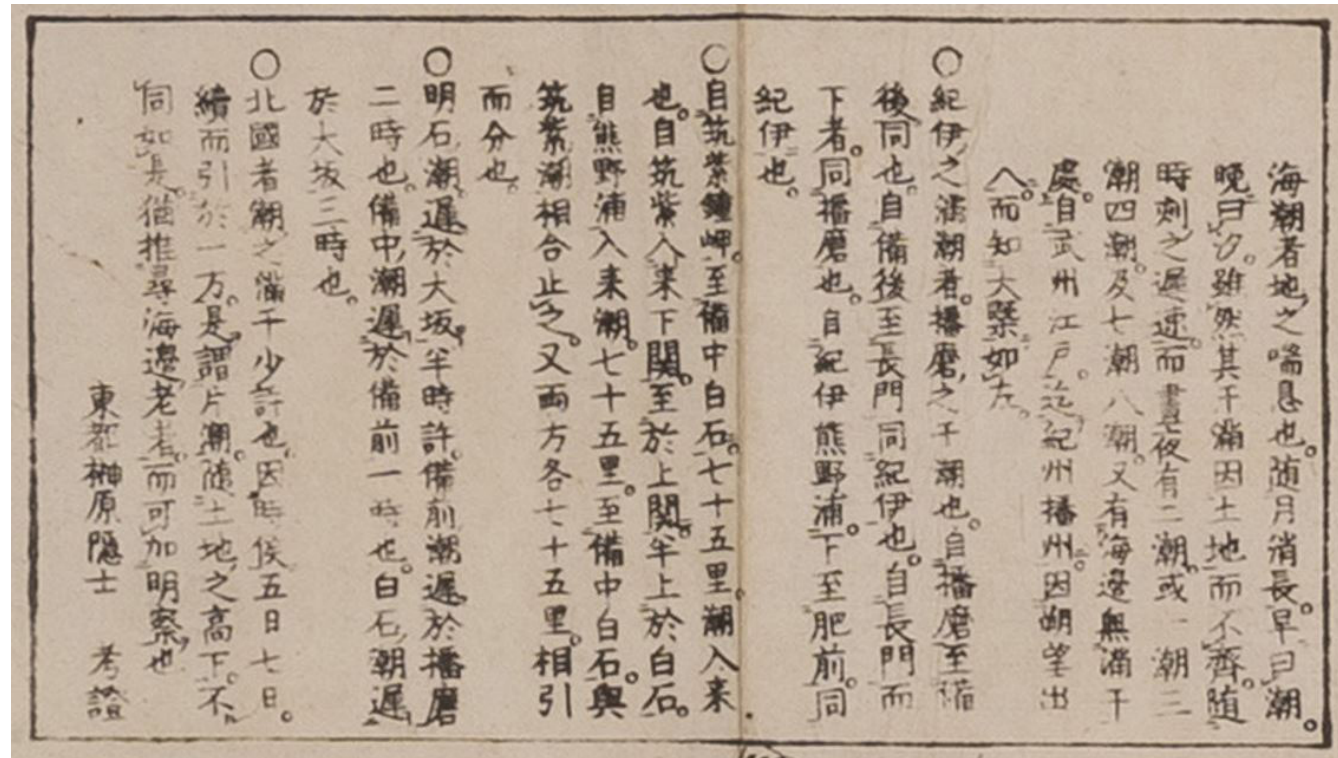 海潮者地之喘息也。随月消長。早曰潮。
晩曰汐。雖然其干滿因土地而不齊。随
時刻之遲速。而晝夜有二潮。或一潮三
潮四潮。及七潮八潮。又有海邊無滿干
處。自武州江戸迄紀州播州。因朔望出
入。而知大槩如左。
〇紀伊之滿潮者。播磨之干潮也。自播磨至備
後同也。自備後至長門同紀伊也。自長門而
下者。同播磨也。自紀伊熊野浦下至肥前同
紀伊也。
〇自筑紫鐘岬。至備中白石。七十五里潮入来
也。自筑紫入来下関。至於上関。半上於白石。
自熊野浦入来潮。七十五里。至備中白石。與
筑紫潮相合止之。又両方各七十五里。相引
而分也。
〇明石潮。遲於大坂。半時許。備前潮遲於播磨
二時也。備中潮遲於備前一時也。白石潮遲
於大坂三時也。
〇北國者潮之滿干少許也。因時候五日七日。
續而引於一方。是謂片潮。随土地之高下。不
同如是。猶推尋海邊老者。而可加明察也
東都榊原隱士 考證